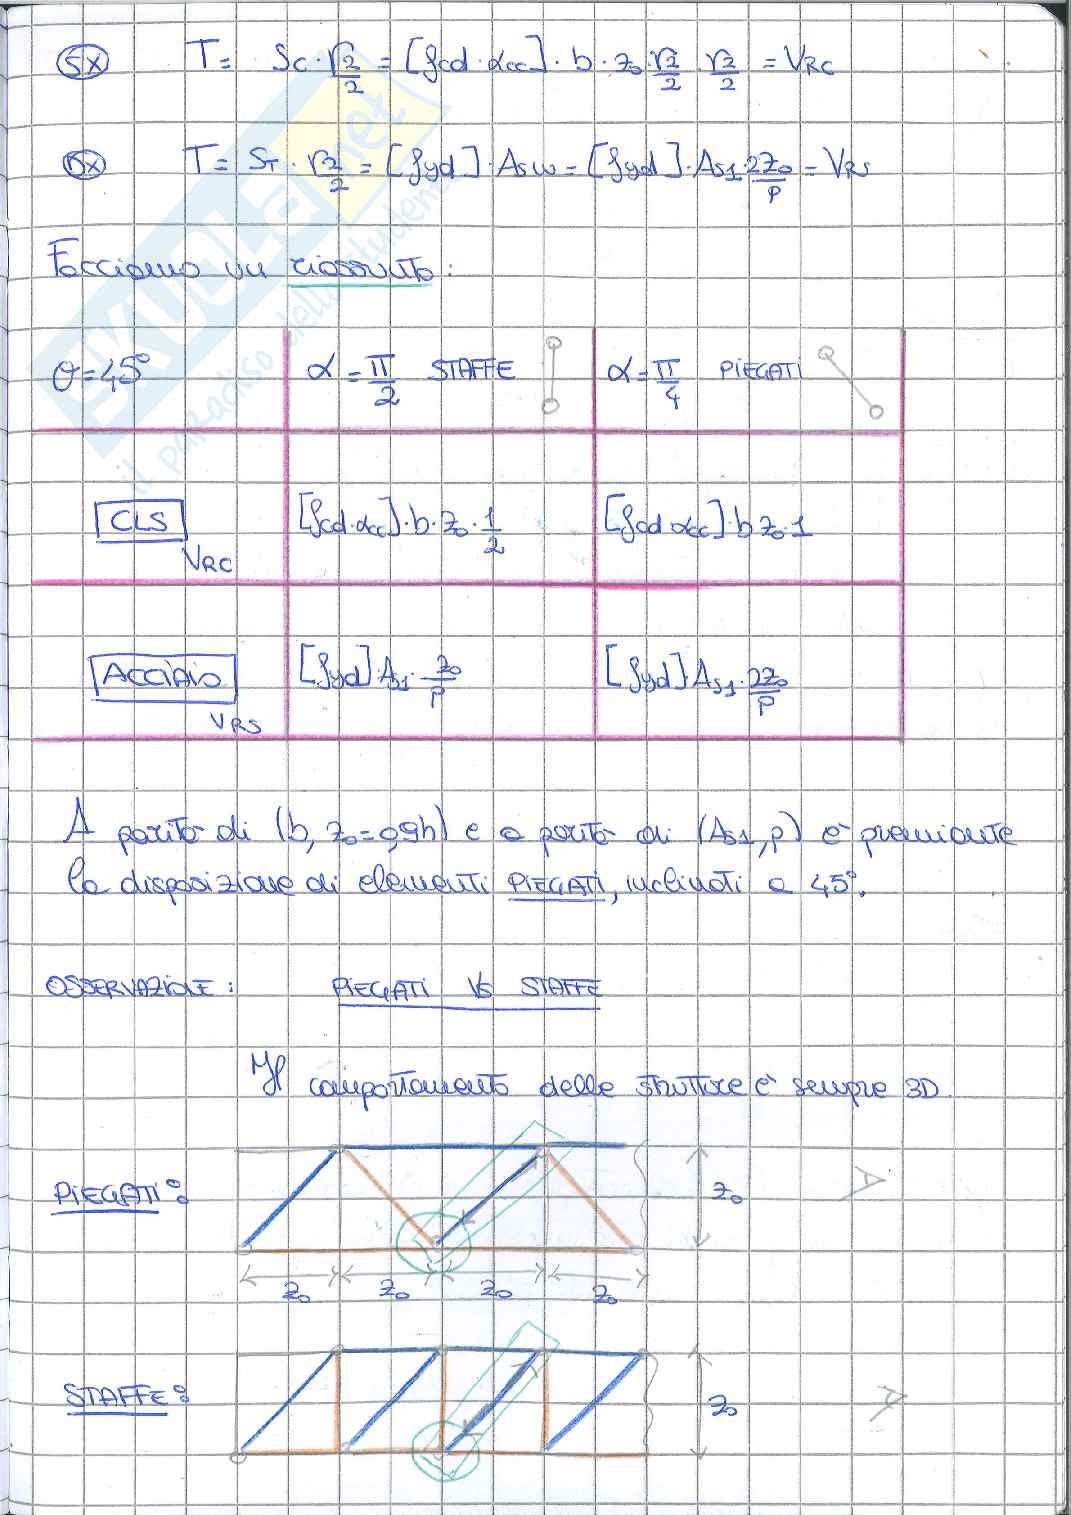 SX T = Sc · √2/2 = [fcd · αcc] · b · z₀ · √2/2 · √2/2 = VRC
DX T = ST · √2/2 = [fyd] · Asw = [fyd] · As1 · 2z₀/p = VRS
Facciamo un riassunto:
θ = 45° α = π/2 STAFFE α = π/4 PIEGATI
CLS VRC [fcd · αcc] · b · z₀ · 1/2 [fcd · αcc] · b z₀ · 1
ACCIAIO VRS [fyd] · As1 · z₀/p [fyd] As1 · 2z₀/p
A parità di (b, z₀=0,9h) e a parità di (As1, p) è premiante
la disposizione di elementi PIEGATI, inclinati a 45°.
OSSERVAZIONE: PIEGATI VS STAFFE
Il comportamento delle strutture è sempre 3D.
PIEGATI: z₀
z₀ z₀ z₀ z₀
STAFFE: z₀
SKUOLA.net
il paradiso dello studente